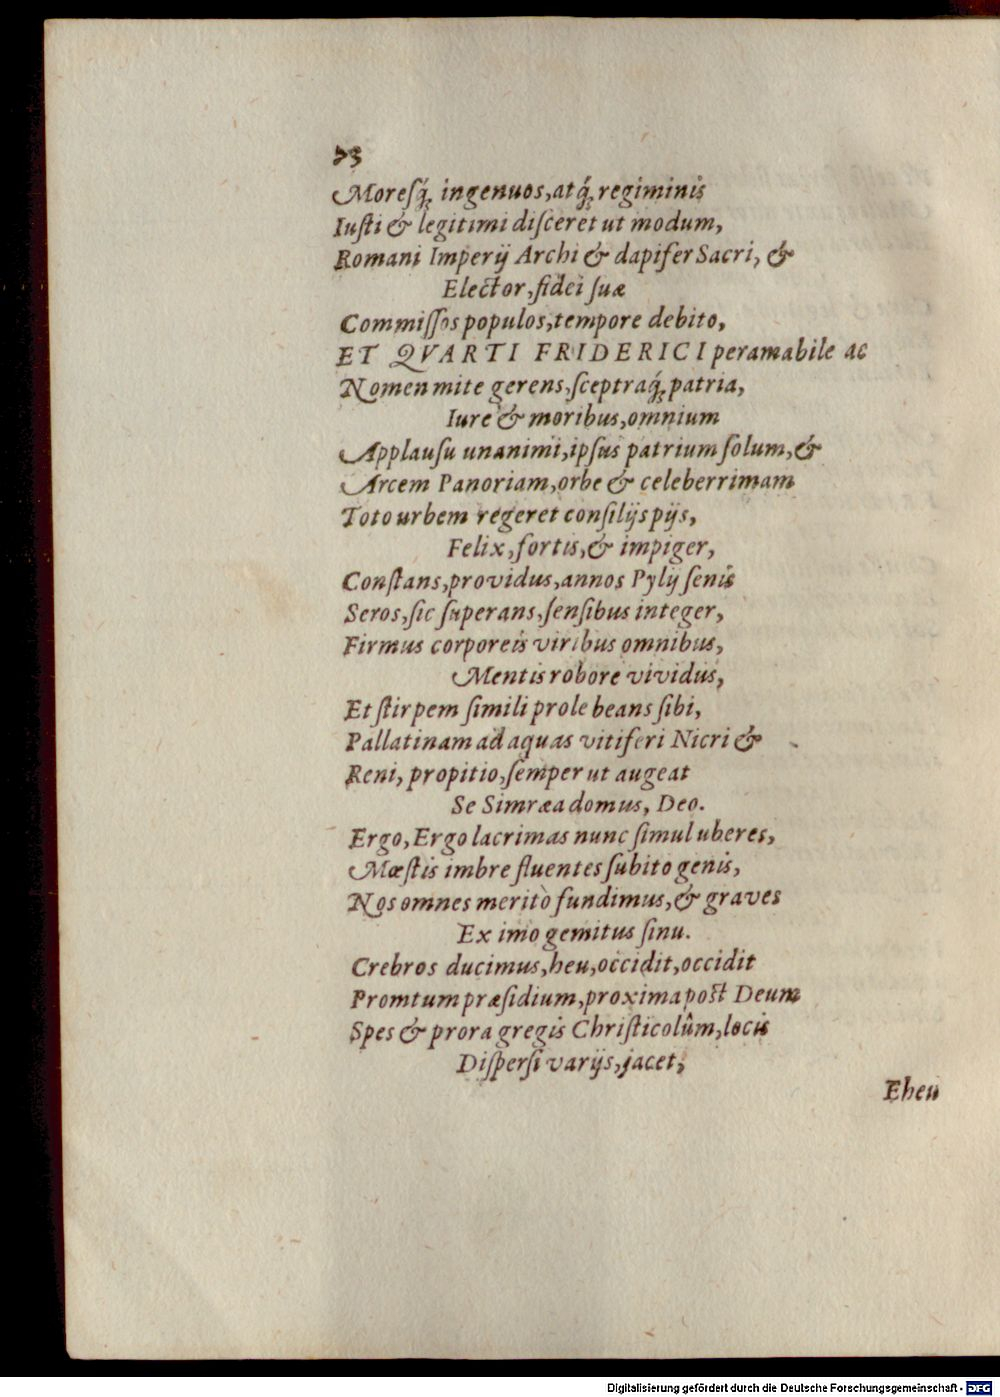 Moresq́; ingenuos, atq́; regiminis
Iusti & legitimi disceret ut modum,
Romani Imperij Archi & dapifer Sacri, &
Elector, fidei suæ
Commissos populos, tempore debito,
ET QVARTI FRIDERICI peramabile ac
Nomen mite gerens, sceptraq́; patria,
Iure & moribus, omnium
Applausu unanimi, ipsus patrium solum, &
Arcem Panoriam, orbe & celeberrimam
Toto urbem regeret consilijs pijs,
Felix, fortis, & impiger,
Constans, providus, annos Pylij senis
Seros, sic superans, sensibus integer,
Firmus corporeis viribus omnibus,
Mentis robore vividus,
Et stirpem simili prole beans sibi,
Pallatinam ad aquas vitiferi Nicri &
Reni, propitio, semper ut augeat
Se Simræa domus, Deo.
Ergo, Ergo lacrimas nunc simul uberes,
Mœstis imbre fluentes subito genis,
Nos omnes meritò fundimus, & graves
Ex imo gemitus sinu.
Crebros ducimus, heu, occidit, occidit
Promtum præsidium, proxima post Deum
Spes & prora gregis Christicolûm, locis
Dispersi varijs, jacet,
Eheu
Digitalisierung gefördert durch die Deutsche Forschungsgemeinschaft - DFG